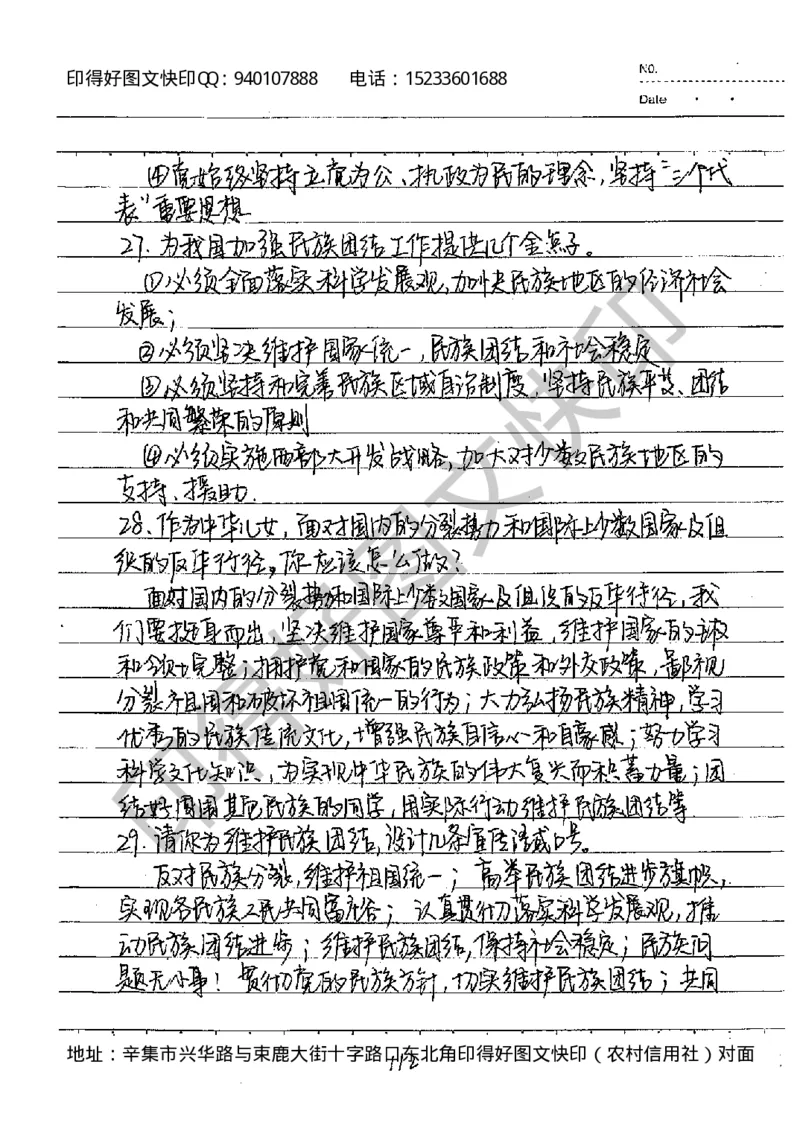 印得好图文快印QQ：940107888 电话：15233601688
No.
Date
④党始终坚持立党为公、执政为民的理念，坚持“三个代
表”重要思想
27. 为我国加强民族团结工作提供几个金点子。
①必须全面落实科学发展观，加快民族地区的经济社会
发展；
②必须坚决维护国家统一，民族团结和社会稳定
③必须坚持和完善民族区域自治制度，坚持民族平等、团结
和共同繁荣的原则
④必须实施西部大开发战略，加大对少数民族地区的
支持、援助.
28、作为中华儿女，面对国内的分裂势力和国际上少数国家及组
织的反华行径，你应该怎么做？
面对国内的分裂势力和国际上少数国家及组织的反华行径，我
们要挺身而出，坚决维护国家尊严和利益，维护国家的主权
和领土完整；拥护党和国家的民族政策和外交政策，鄙视
分裂祖国和破坏祖国统一的行为；大力弘扬民族精神，学习
优秀的民族传统文化，增强民族自信心和自豪感；努力学习
科学文化知识，为实现中华民族的伟大复兴而积蓄力量；团
结好周围其他民族的同学，用实际行动维护民族团结等
29. 请你为维护民族团结，设计几条宣传语或口号。
反对民族分裂，维护祖国统一；高举民族团结进步旗帜，
实现各民族人民共同富裕；认真贯彻落实科学发展观，推
动民族团结进步；维护民族团结，保持社会稳定；民族问
题无小事！贯彻党的民族方针，切实维护民族团结；共同
地址：辛集市兴华路与束鹿大街十字路口东北角印得好图文快印（农村信用社）对面
印得好图文快印